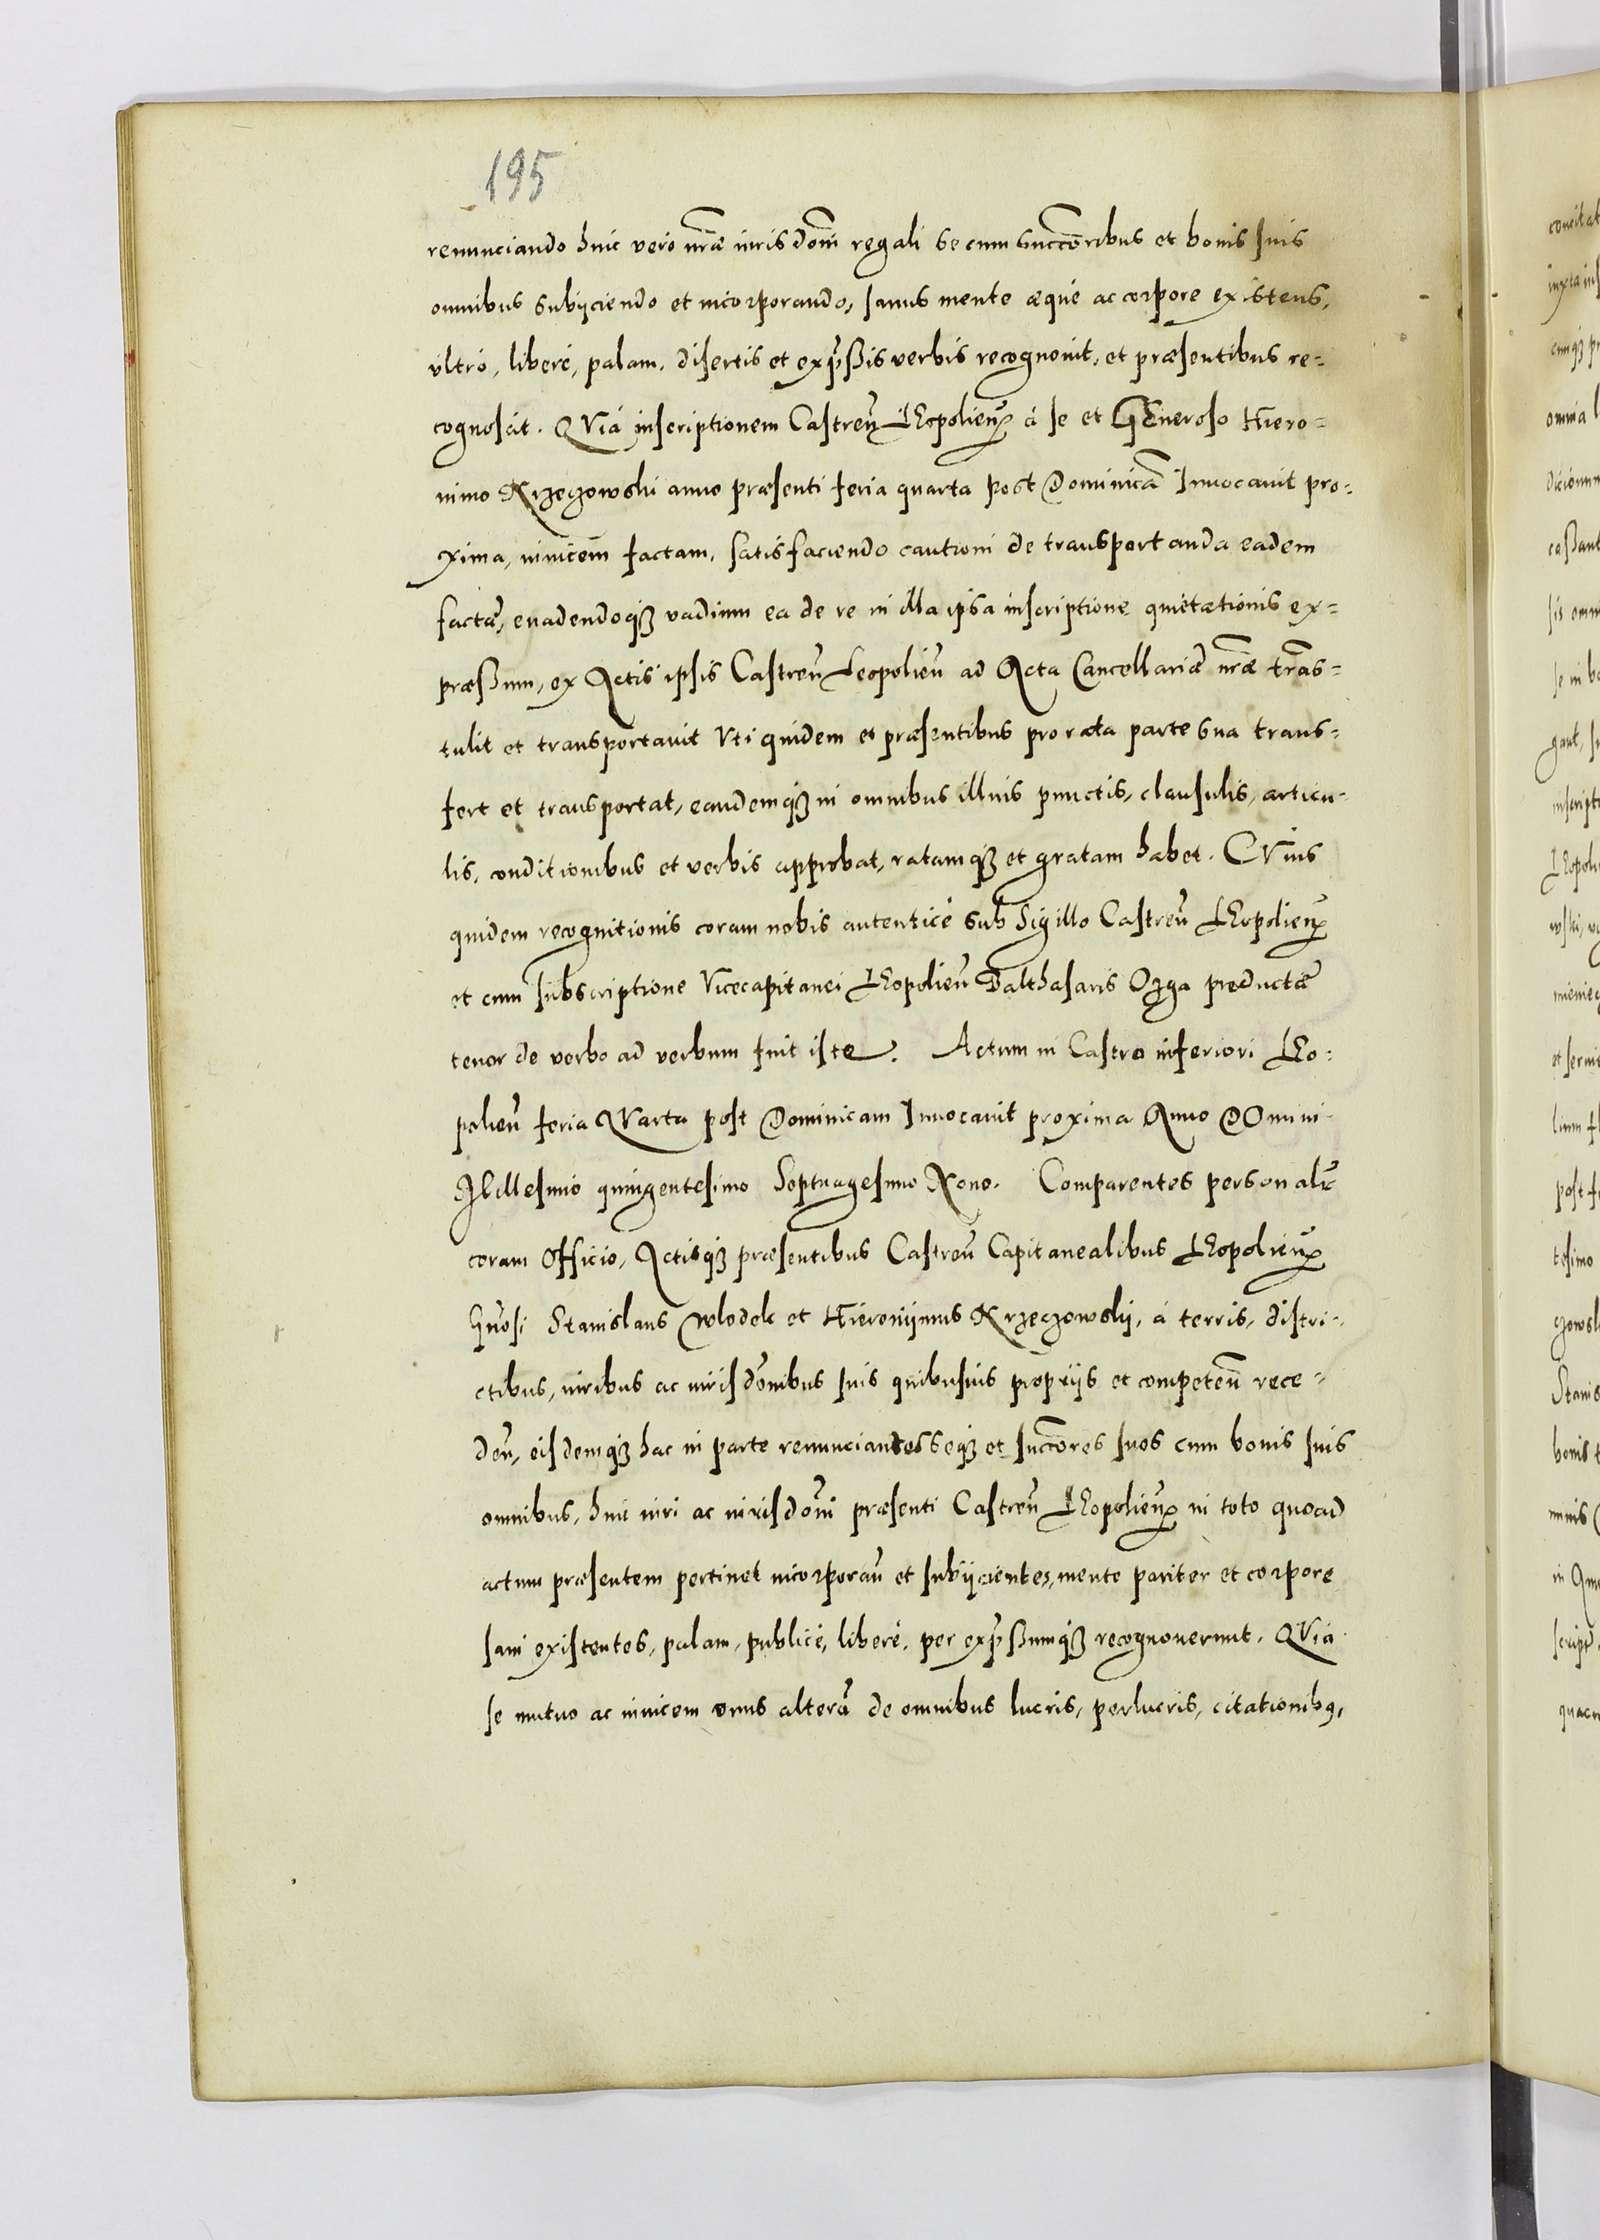 195
renunciando huic vero nr̃æ iurisdõni regali se cum succẽoribus et bonis suis
omnibus subijciendo et incorporando, sanus mente æquè ac corpore existens,
vltrò, liberè, palam, disertis et exp̃ssis verbis recognouit, et præsentibus re=
cognoscit. QVià inscriptionem Castreñ LEopolieñ à se et GEneroso Hiero=
nimo Krzeczowski anno præsenti feria quarta post Dominicã Inuocauit pro=
xima, inuicem factam, satisfaciendo cautioni de transportanda eadem
factæ, euadendoq3 vadium ea de re in illa ipsa inscriptione quietationis ex=
præssum, ex Actis ipsis Castreñ Leopolieñ ad Acta Cancellariæ nr̃æ trãs=
tulit et transportauit Vti quidem et præsentibus pro rata parte sua trans=
fert et transportat, eandemq3 in omnibus illius punctis, clausulis, articu=
lis, conditionibus et verbis approbat, ratamq3 et gratam habet. CVius
quidem recognitionis coram nobis autenticè sub sigillo Castreñ LEopolieñ
et cum subscriptione Vicecapitanei LEopolieñ Balthasaris Ozga productæ
tenor de verbo ad verbum fuit iste. Actum in Castro inferiori LEo=
polieñ feria QVarta post Dominicam Inuocauit proxima Anno DOmini
Millesimo quingentesimo Septuagesimo Nono. Comparentes personalr̃
coram Officio, Actisq3 præsentibus Castreñ Capitanealibus LEopolieñ
Gñosi Stanislaus Wlodek et Hieronijmus Krzeczowskij, à terris, distri=
ctibus, iuribus ac iurisdõnibus suis quibusuis proprijs et competeñ rece=
deñ, eisdemq3 hac in parte renunciantes seq3 et succẽores suos cum bonis suis
omnibus, huic iuri ac iurisdõni præsenti Castreñ LEopolieñ in toto quoad
actum præsentem pertinet incorporañ et subijcientes, mente pariter et corpore
sani existentes, palam, publicè, liberè, per exp̃ssumq3 recognouerunt. QVià
se mutuo ac inuicem vnus alterũ de omnibus lucris, perlucris, citationib9,